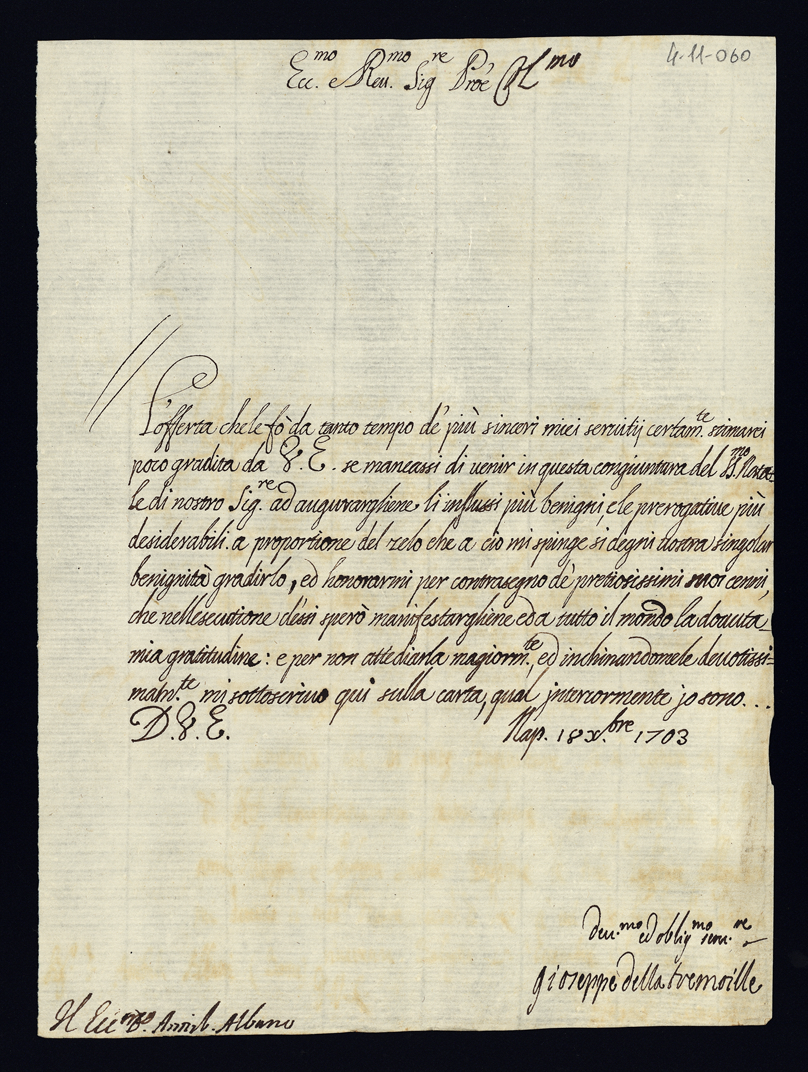 4-11-060
Ecc.mo e Reu.mo Sig.re Proe Col.mo
L'offerta che le fò da tanto tempo de' più sinceri miei seruitij certam.te stimarei
poco gradita da V. E. se mancassi di venir in questa congiuntura del S.mo Nata-
le di nostro Sig.re ad augurarghiene li influssi più benigni, e le prerogatiue più
desiderabili. a proportione del zelo che a ciò mi spinge si degni vostra singolar
benignità gradirlo, ed honorarmi per contrasegno de' pretiosissimi suoi cenni,
che nell'esecutione d'essi sperò manifestarghiene ed a tutto il mondo la douuta
mia gratitudine: e per non attediarla magiorm.te, ed inchinandomele deuotissi=
mam.te mi sottoscriuo quì sulla carta, qual interiormente jo sono...
D. V. E. Nap. 18 x.bre 1703
Deu.mo ed oblig.mo seru.re
Gioseppe della tremoille
Il Ecc.mo D. Annib. Albano